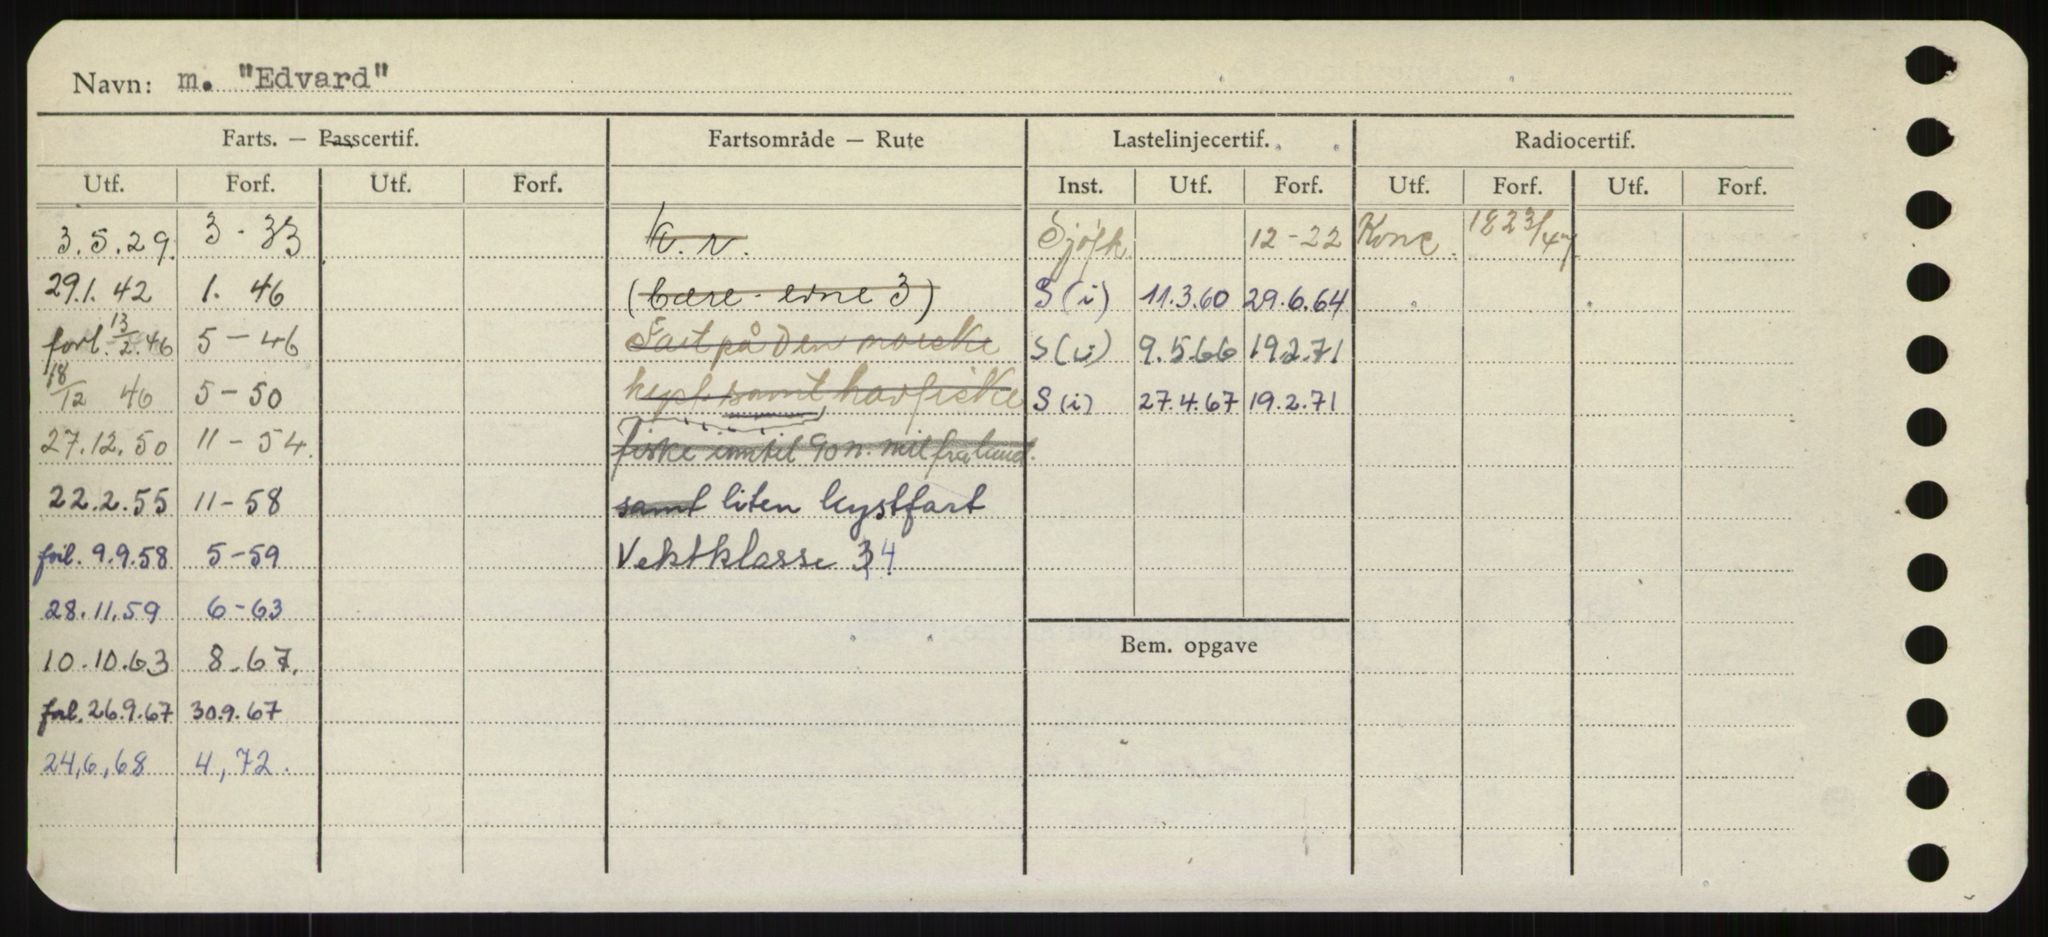 Navn: m. "Edvard"
Farts. — Passcertif. Fartsområde — Rute Lastelinjecertif. Radiocertif.
Utf. Forf. Utf. Forf. Inst. Utf. Forf. Utf. Forf. Utf. Forf.
3.5.29. 3-33 K.v. Sjöfk. 12-22 Konc. 18 23/47
29.1.42 1. 46 (bære-evne 3) S(i) 11.3.60 29.6.64
forl. 13/2.46 5-46 Fart på den norske S(i) 9.5.66 19.2.71
18/12 46 5-50 kyst samt havfiske S(i) 27.4.67 19.2.71
27.12.50 11-54. fiske inntil 90 n. mil fra land.
22.2.55 11-58 samt liten kystfart
forl. 9.9.58 5-59 Vektklasse 3 4
28.11.59 6-63
10.10.63 8.67. Bem. opgave
forl. 26.9.67 30.9.67
24,6,68 4,72.